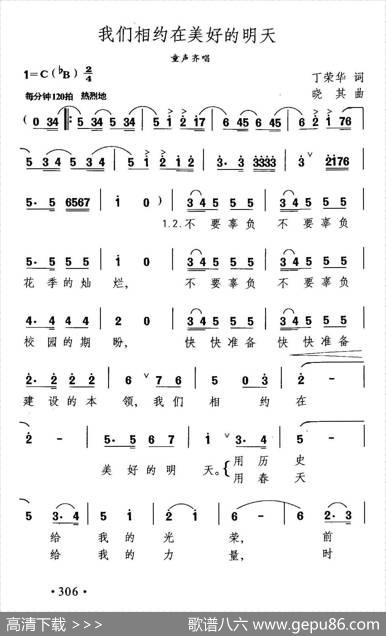 我们相约在美好的明天
童声齐唱
1=C(♭B) 2/4
丁荣华 词
每分钟120拍 热烈地
晓其 曲
(0 34 5 34 5 34 5 1 2 17 6 45 6 45 6 2 1 76
5 34 5 34 5 1 2 12 3·3 3333 3 ∨ 2176
5·5 6567 1 0) 3 4 5 5 5 3 4 5 5 5
1.2.不要辜负 不要辜负
5·5 5 5 1 0 3 4 5 5 5 3 4 5 5 5
花季的灿烂, 不要辜负 不要辜负
4·4 4 3 2 0 3 4 5 5 5 3 4 5 5 5
校园的期盼, 快快准备 快快准备
2·2 2 2 6 ∨ 7 6 5 0 3 2
建设的本领,我们相约在
2 - 5·5 6 7 1 ∨ 3·4 5 1
美好的明天。{用历史
用春天
5 3·4 5 1 2 1 6 - 6 2·3
给我的光荣, 前
给我的力量, 时
·306·
高清下载 >>>
歌谱八六 www.gepu86.com